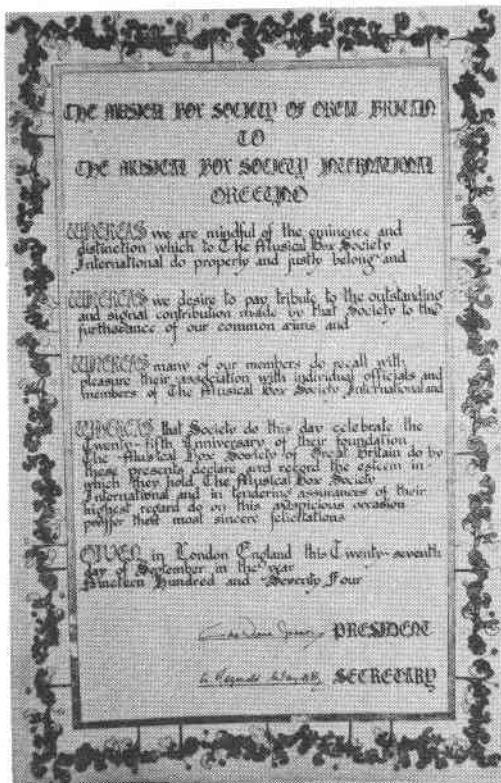 THE MUSICAL BOX SOCIETY OF GREAT BRITAIN
TO
THE MUSICAL BOX SOCIETY INTERNATIONAL
GREETING
WHEREAS we are mindful of the eminence and
distinction which to The Musical Box Society
International do properly and justly belong and
WHEREAS we desire to pay tribute to the outstanding
and signal contribution made by that Society to the
furtherance of our common aims and
WHEREAS many of our members do recall with
pleasure their association with individual officials and
members of The Musical Box Society International and
WHEREAS that Society do this day celebrate the
Twenty-fifth Anniversary of their foundation
The Musical Box Society of Great Britain do by
these presents declare and record the esteem in
which they hold The Musical Box Society
International and in tendering assurances of their
highest regard do on this auspicious occasion
proffer their most sincere felicitations
GIVEN in London England this Twenty-seventh
day of September in the year
Nineteen Hundred and Seventy Four
PRESIDENT
SECRETARY